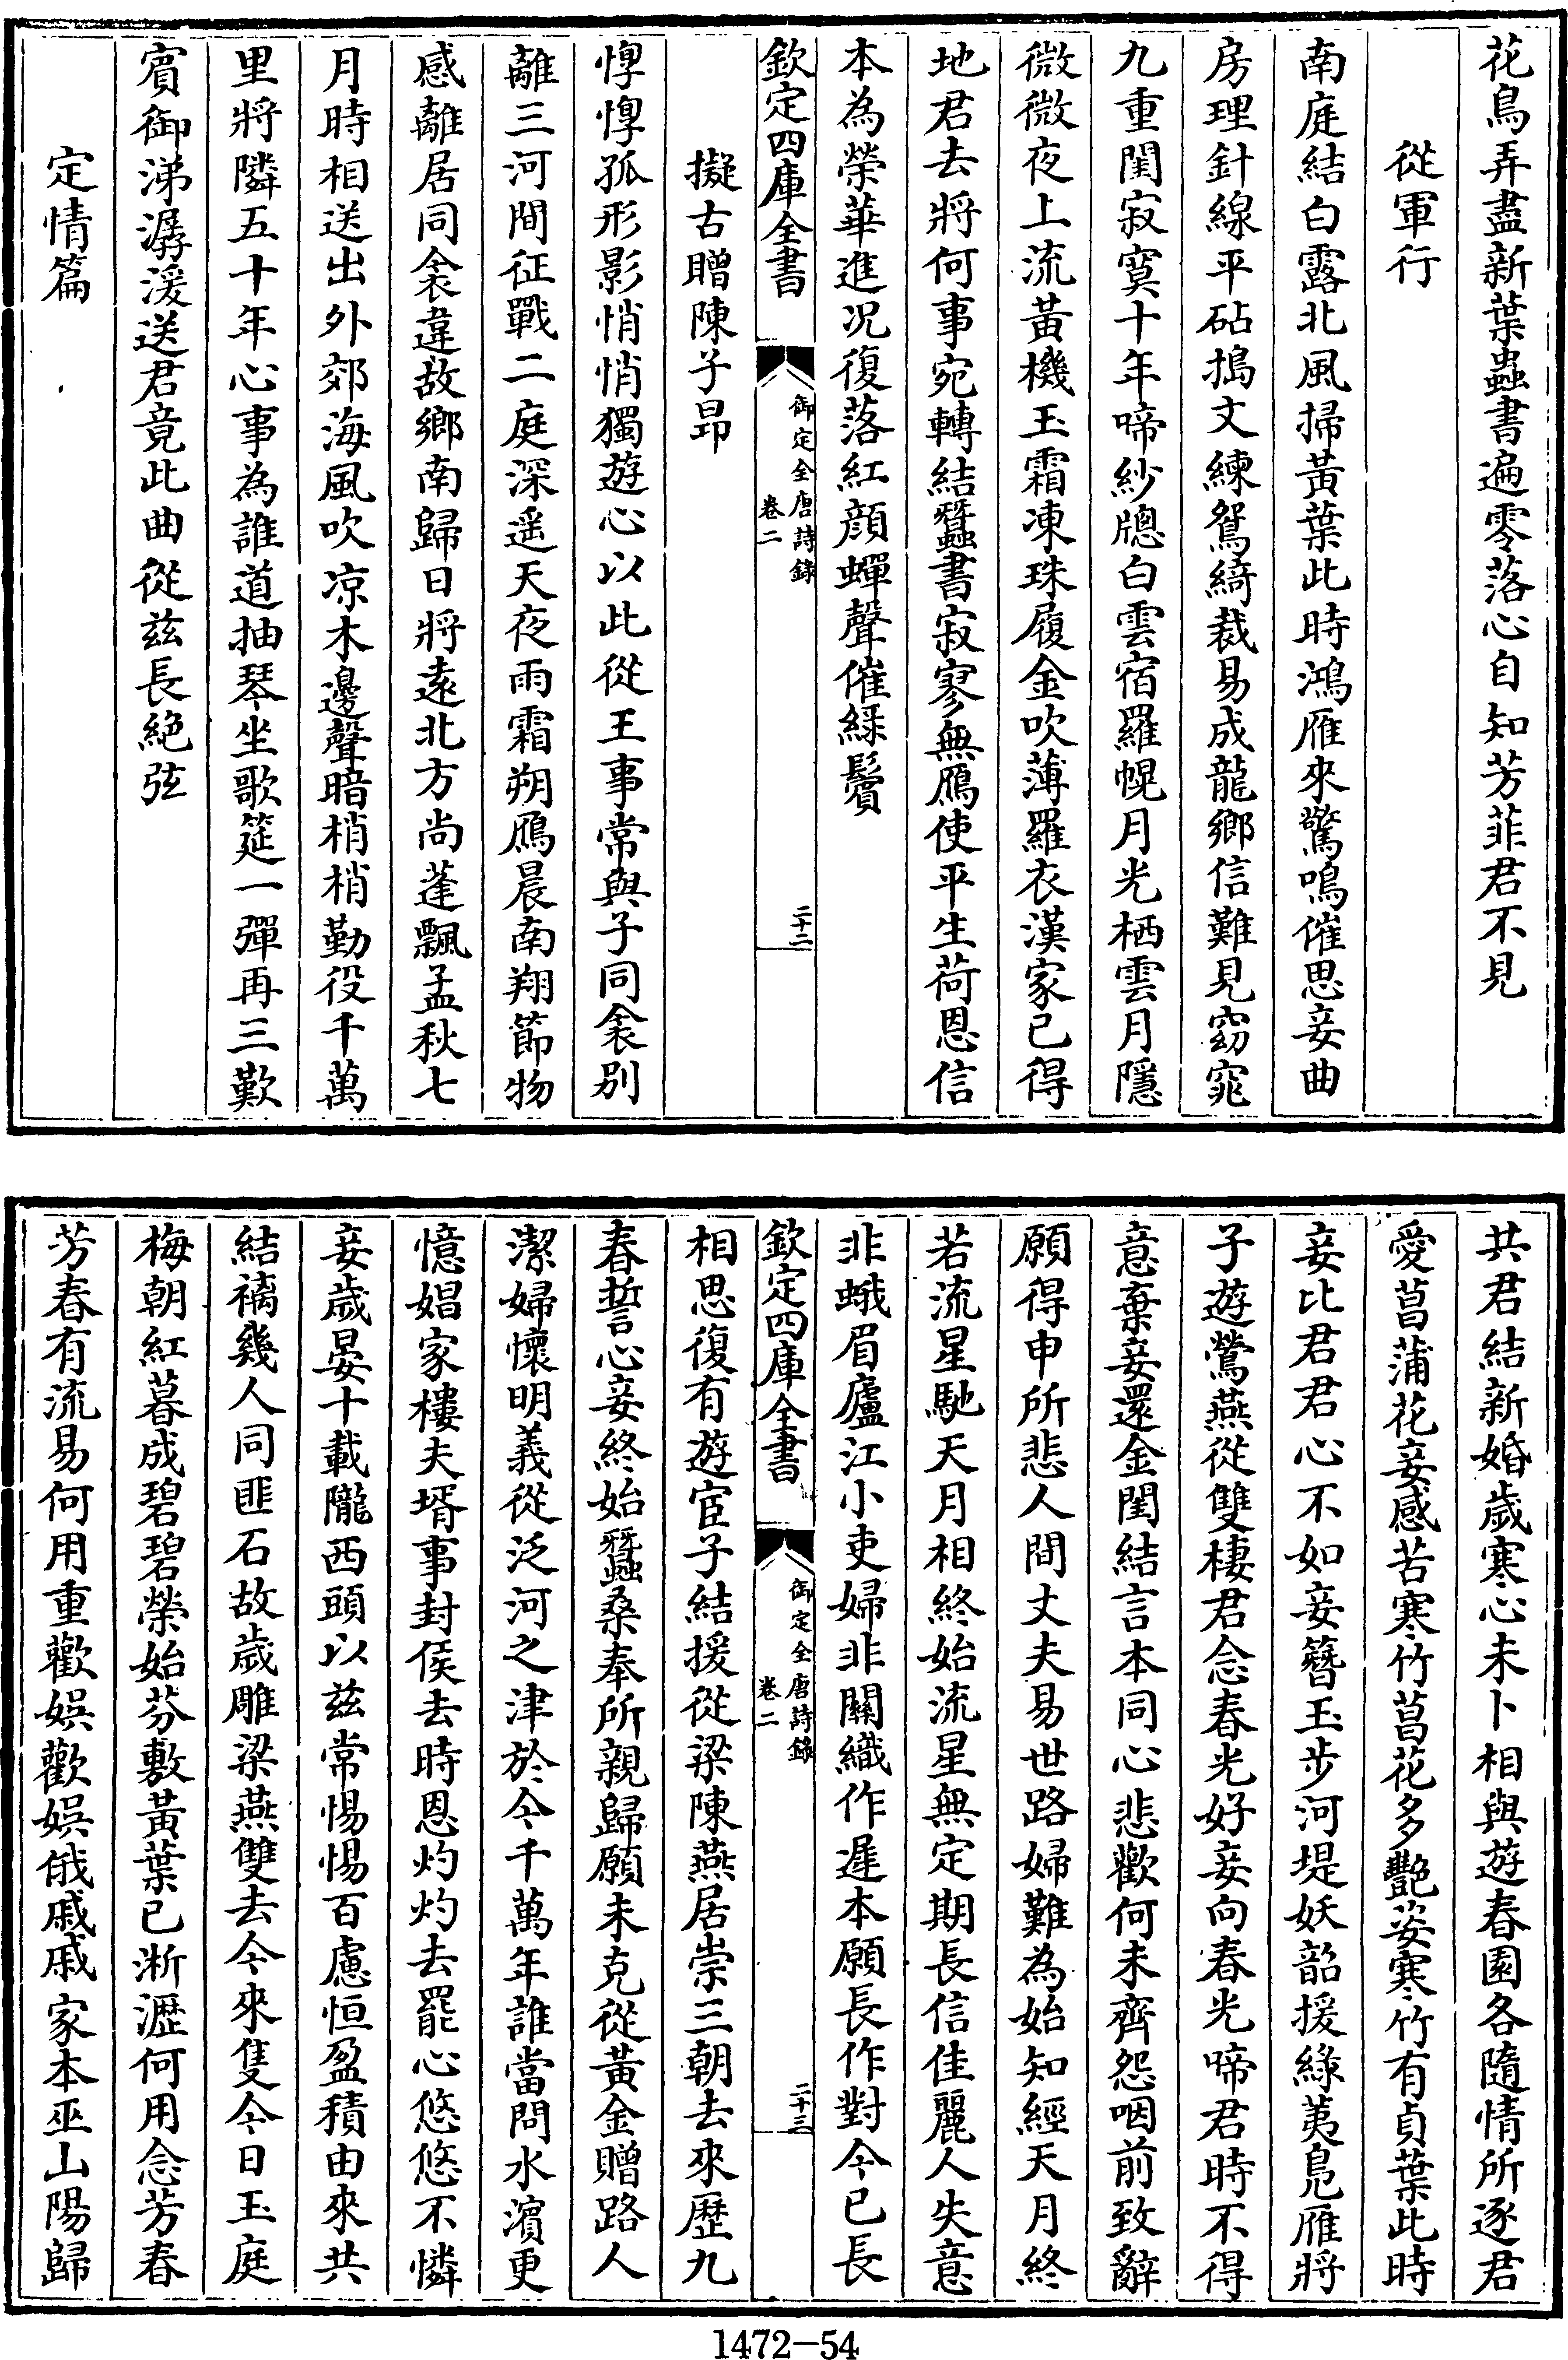 花鳥弄盡新葉蟲書遍零落心自知芳菲君不見
從軍行
南庭結白露北風掃黃葉此時鴻雁來驚鳴催思妾曲
房理針線平砧搗文練鴛綺裁易成龍鄉信難見窈窕
九重閨寂寞十年啼紗牕白雲宿羅幌月光栖雲月隱
微微夜上流黃機玉霜凍珠履金吹薄羅衣漢家已得
地君去將何事宛轉結蠶書寂寥無鴈使平生荷恩信
本為榮華進况復落紅顔蟬聲催綠鬢
欽定四庫全書
御定全唐詩錄
卷二
二十二
擬古贈陳子昻
惸惸孤形影悄悄獨遊心以此從王事常與子同衾别
離三河間征戰二庭深遥天夜雨霜朔鴈晨南翔節物
感離居同衾違故鄉南歸日將逺北方尚蓬飄孟秋七
月時相送出外郊海風吹凉木邊聲暗梢梢勤役千萬
里將隣五十年心事為誰道抽琴坐歌筵一彈再三歎
賓御涕潺湲送君竟此曲從兹長絶弦
定情篇
共君結新婚歲寒心未卜相與遊春園各隨情所逐君
愛菖蒲花妾感苦寒竹菖花多艷姿寒竹有貞葉此時
妾比君君心不如妾簪玉步河堤妖韶援綠荑鳬雁將
子遊鶯燕從雙棲君念春光好妾向春光啼君時不得
意棄妾還金閨結言本同心悲歡何未齊怨咽前致辭
願得申所悲人間丈夫易世路婦難為始知經天月終
若流星馳天月相終始流星無定期長信佳麗人失意
非蛾眉廬江小吏婦非關織作遲本願長作對今已長
欽定四庫全書
御定全唐詩錄
卷二
二十三
相思復有遊宦子結援從梁陳燕居崇三朝去來歷九
春誓心妾終始蠶桑奉所親歸願未克從黃金贈路人
潔婦懷明義從泛河之津於今千萬年誰當問水濵更
憶娼家樓夫壻事封侯去時恩灼灼去罷心悠悠不憐
妾歲晏十載隴西頭以兹常惕惕百慮恒盈積由來共
結褵幾人同匪石故歲雕梁燕雙去今來隻今日玉庭
梅朝紅暮成碧碧榮始芬敷黃葉已淅瀝何用念芳春
芳春有流易何用重歡娛歡娛俄戚戚家本巫山陽歸
1472-54